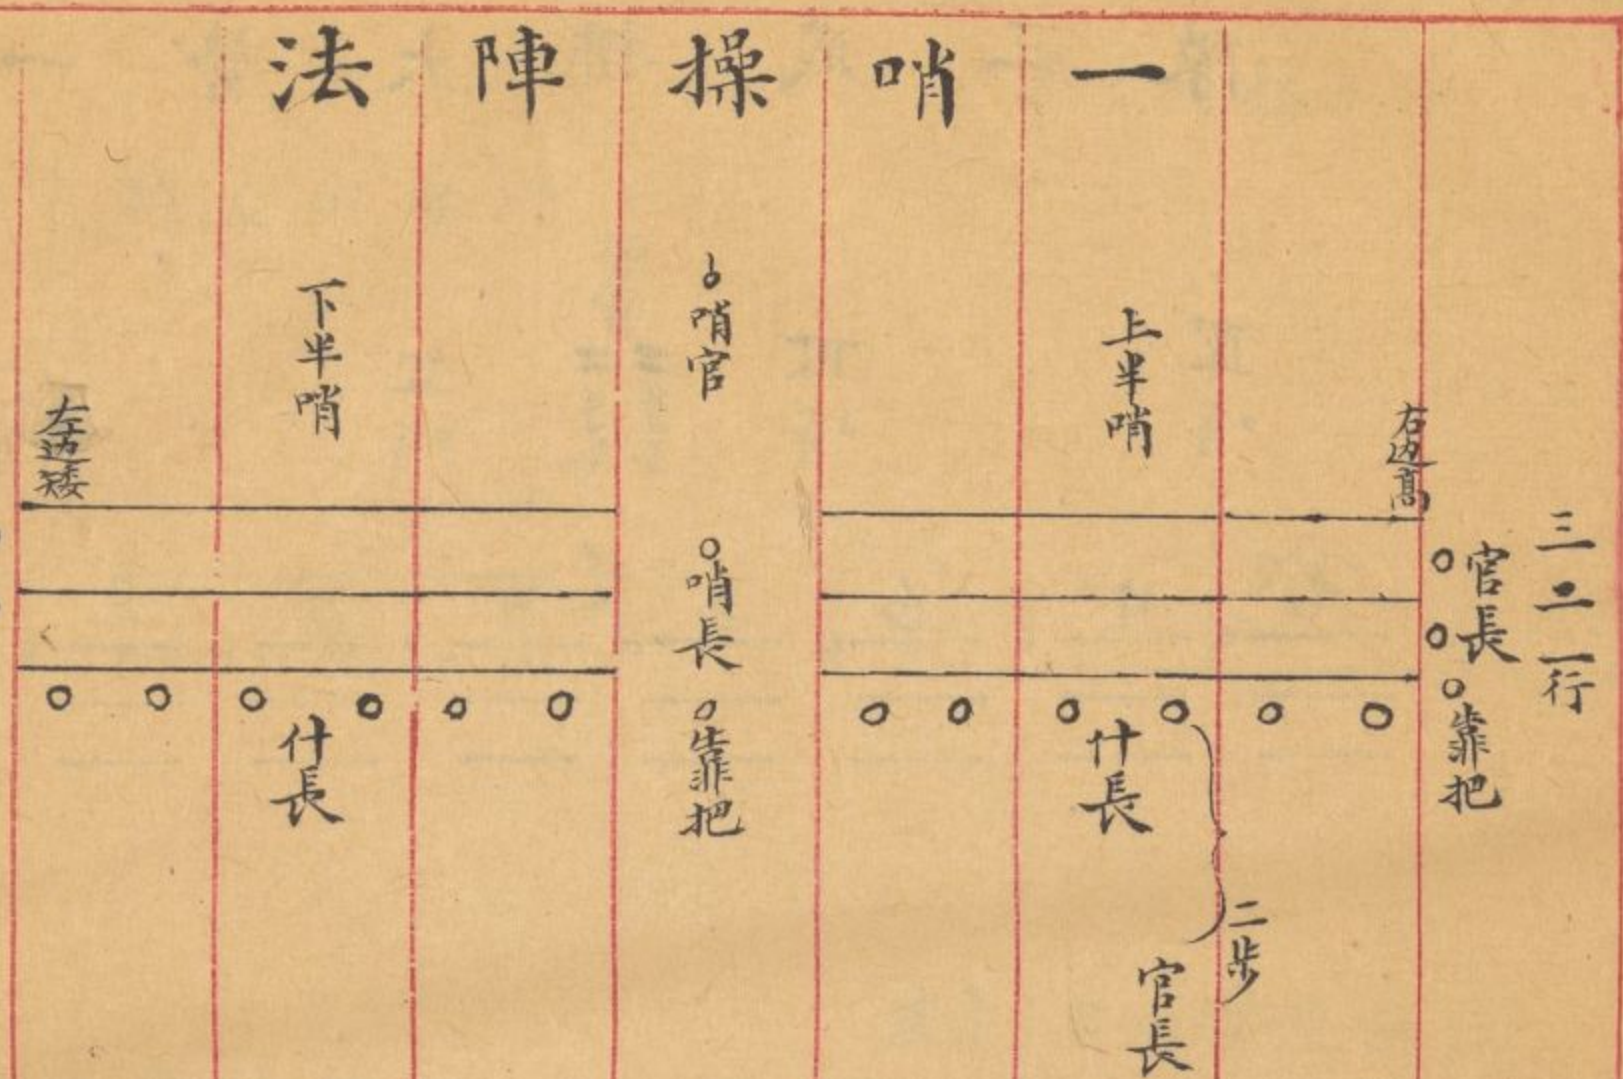 一哨操陣法
三二一行
官長
靠把
右边高
上半哨
什長
二步
官長
哨官
哨長
靠把
下半哨
什長
左边矮